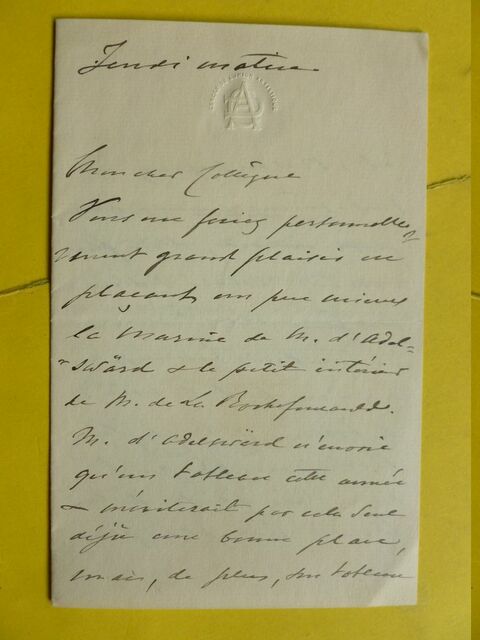 Jeudi matin
CERCLE DE L'UNION ARTISTIQUE
Mon cher Collègue
Vous me feriez personnelle-
ment grand plaisir en
plaçant un peu mieux
la marine de M. d'Adel-
-swärd & le petit intérieur
de M. de La Rochefoucauld.
M. d'Adelswärd n'envoie
qu'un tableau cette année
& mériterait par cela seul
déjà une bonne place,
mais, de plus, son tableau